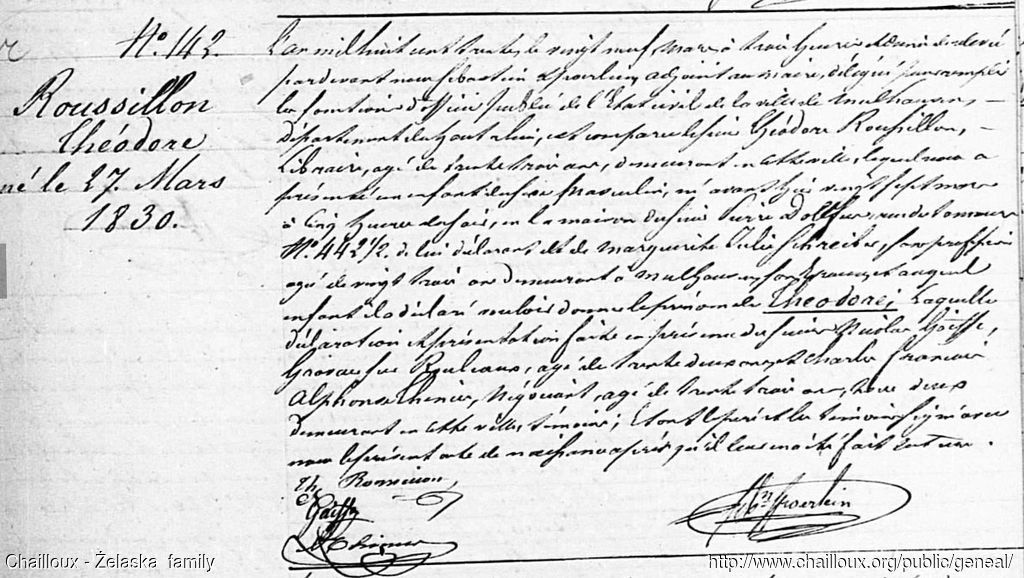 N.o 142
Roussillon
Théodore
né le 27. Mars
1830.
L'an mil huit cent trente, le vingt neuf Mars à trois heures et demie de relevé
pardevant nous Sébastien adjoint au maire, délégué pour remplir
les fonctions d'officier public de l'Etat civil de la ville de Mulhausen,
département du haut rhin, est comparu le sieur Théodore Roussillon,
Libraire, agé de trente trois ans, demeurant en cette ville, lequel nous a
présenté un enfant du sexe Masculin, né avant hier vingt sept mars
à Cinq heures du soir, en la maison du sieur Pierre Dollfus, rue du tonneau
N.o 442 1/2. de lui déclarant et de Marguerite Julie Schreiber, sans profession
agée de vingt trois ans demeurant à Mulhausen, son Epouse, et auquel
enfant il a déclaré vouloir donner le prénom de Théodore; Laquelle
déclaration et présentation faite en présence des sieurs Nicolas
Graveur sur Rouleaux, agé de trente deux ans, et Charles François
Alphonse négociant, agé de trente trois ans, tous deux
demeurant en cette ville, témoins; Et ont le père et les témoins signé avec
nous le présent acte de naissance après qu'il leur en a été fait lecture.
Th Roussillon,
Chailloux - Żelaska family
http://www.chailloux.org/public/geneal/